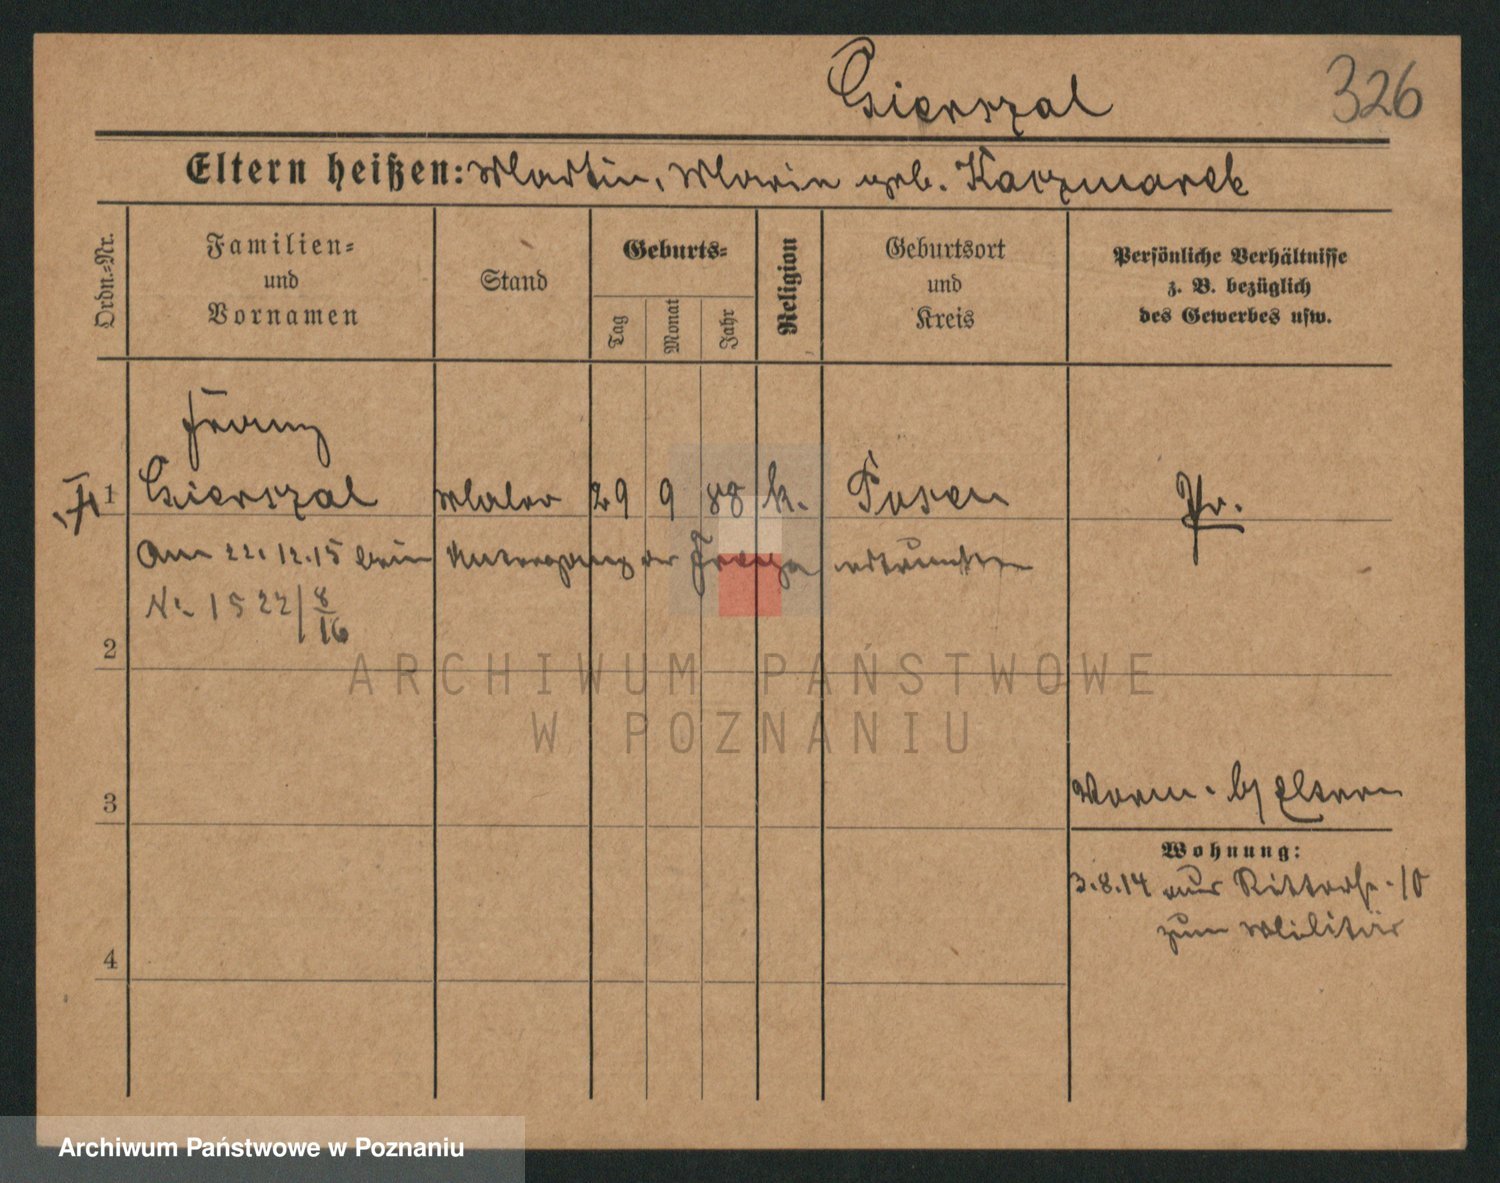 Gierszal 326
Eltern heißen: Martin, Maria geb. Kaczmarek
Ordn.=Nr.
Familien=
und
Vornamen
Stand
Geburts=
Tag
Monat
Jahr
Religion
Geburtsort
und
Kreis
Persönliche Verhältnisse
z. B. bezüglich
des Gewerbes usw.
Franz
1 Gierszal Maler 29 9 88 k. Posen Pr.
Am 22.12.15 beim Untergang der ertrunken
No 1522/8/16
2
3
b/ Eltern
Wohnung:
3.8.14 aus Ritterstr. 10
zum Militär
4
ARCHIWUM PAŃSTWOWE
W POZNANIU
Archiwum Państwowe w Poznaniu